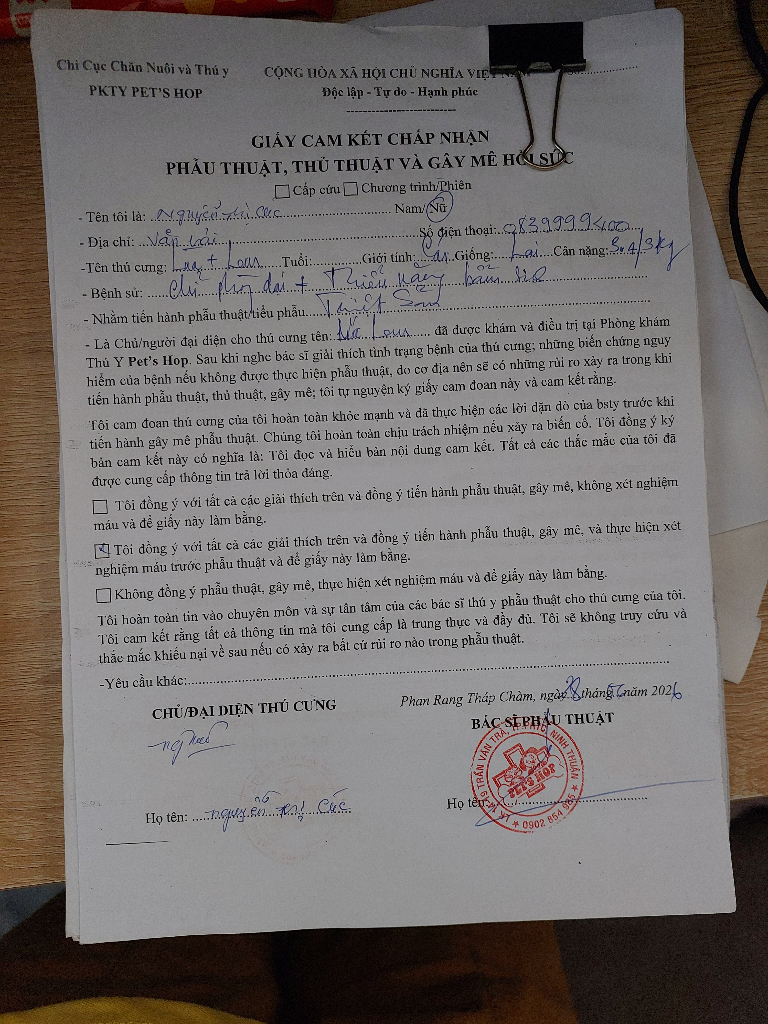 Chi Cục Chăn Nuôi và Thú y
PKTY PET'S HOP
CỘNG HÒA XÃ HỘI CHỦ NGHĨA VIỆT NAM
Độc lập - Tự do - Hạnh phúc
GIẤY CAM KẾT CHẤP NHẬN
PHẪU THUẬT, THỦ THUẬT VÀ GÂY MÊ HỒI SỨC
Cấp cứu Chương trình/Phiên
- Tên tôi là: Nguyễn Thị Cúc Nam/Nữ
- Địa chỉ: Văn Hải Số điện thoại: 0839999400
-Tên thú cưng: + Louis Tuổi: Giới tính: Giống: Lai Cân nặng: 3.4/3kg
- Bệnh sử: +
- Nhằm tiến hành phẫu thuật/tiểu phẫu Triệt Sản
- Là Chủ/người đại diện cho thú cưng tên: đã được khám và điều trị tại Phòng khám
Thú Y Pet's Hop. Sau khi nghe bác sĩ giải thích tình trạng bệnh của thú cưng; những biến chứng nguy
hiểm của bệnh nếu không được thực hiện phẫu thuật, do cơ địa nên sẽ có những rủi ro xảy ra trong khi
tiến hành phẫu thuật, thủ thuật, gây mê; tôi tự nguyện ký giấy cam đoan này và cam kết rằng.
Tôi cam đoan thú cưng của tôi hoàn toàn khỏe mạnh và đã thực hiện các lời dặn dò của bsty trước khi
tiến hành gây mê phẫu thuật. Chúng tôi hoàn toàn chịu trách nhiệm nếu xảy ra biến cố. Tôi đồng ý ký
bản cam kết này có nghĩa là: Tôi đọc và hiểu bản nội dung cam kết. Tất cả các thắc mắc của tôi đã
được cung cấp thông tin trả lời thỏa đáng.
Tôi đồng ý với tất cả các giải thích trên và đồng ý tiến hành phẫu thuật, gây mê, không xét nghiệm
máu và để giấy này làm bằng.
Tôi đồng ý với tất cả các giải thích trên và đồng ý tiến hành phẫu thuật, gây mê, và thực hiện xét
nghiệm máu trước phẫu thuật và để giấy này làm bằng.
Không đồng ý phẫu thuật, gây mê, thực hiện xét nghiệm máu và để giấy này làm bằng.
Tôi hoàn toàn tin vào chuyên môn và sự tận tâm của các bác sĩ thú y phẫu thuật cho thú cưng của tôi.
Tôi cam kết rằng tất cả thông tin mà tôi cung cấp là trung thực và đầy đủ. Tôi sẽ không truy cứu và
thắc mắc khiếu nại về sau nếu có xảy ra bất cứ rủi ro nào trong phẫu thuật.
-Yêu cầu khác:
Phan Rang Tháp Chàm, ngày 28 tháng năm 2026
CHỦ/ĐẠI DIỆN THÚ CƯNG
BÁC SĨ PHẪU THUẬT
PETS HOP
TRẦN VĂN TRÀ, NINH THUẬN
0902 854 985
Họ tên: Nguyễn Thị Cúc
Họ tên: